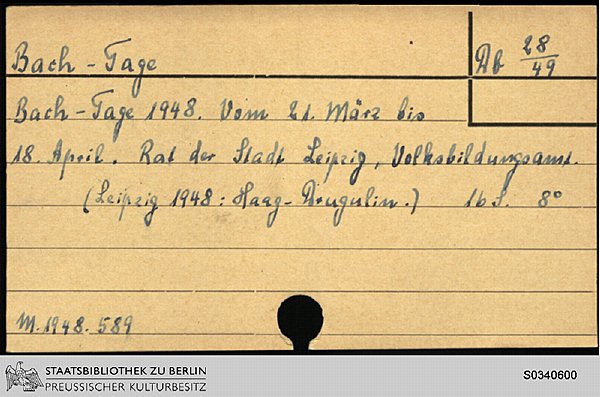 Bach-Tage
Db 28/49
Bach-Tage 1948. Vom 21. März bis
18. April. Rat der Stadt Leipzig, Volksbildungsamt.
(Leipzig 1948: Haag-Drugulin.) 16 S. 8°
M. 1948. 589
STAATSBIBLIOTHEK ZU BERLIN
PREUSSISCHER KULTURBESITZ
S0340600